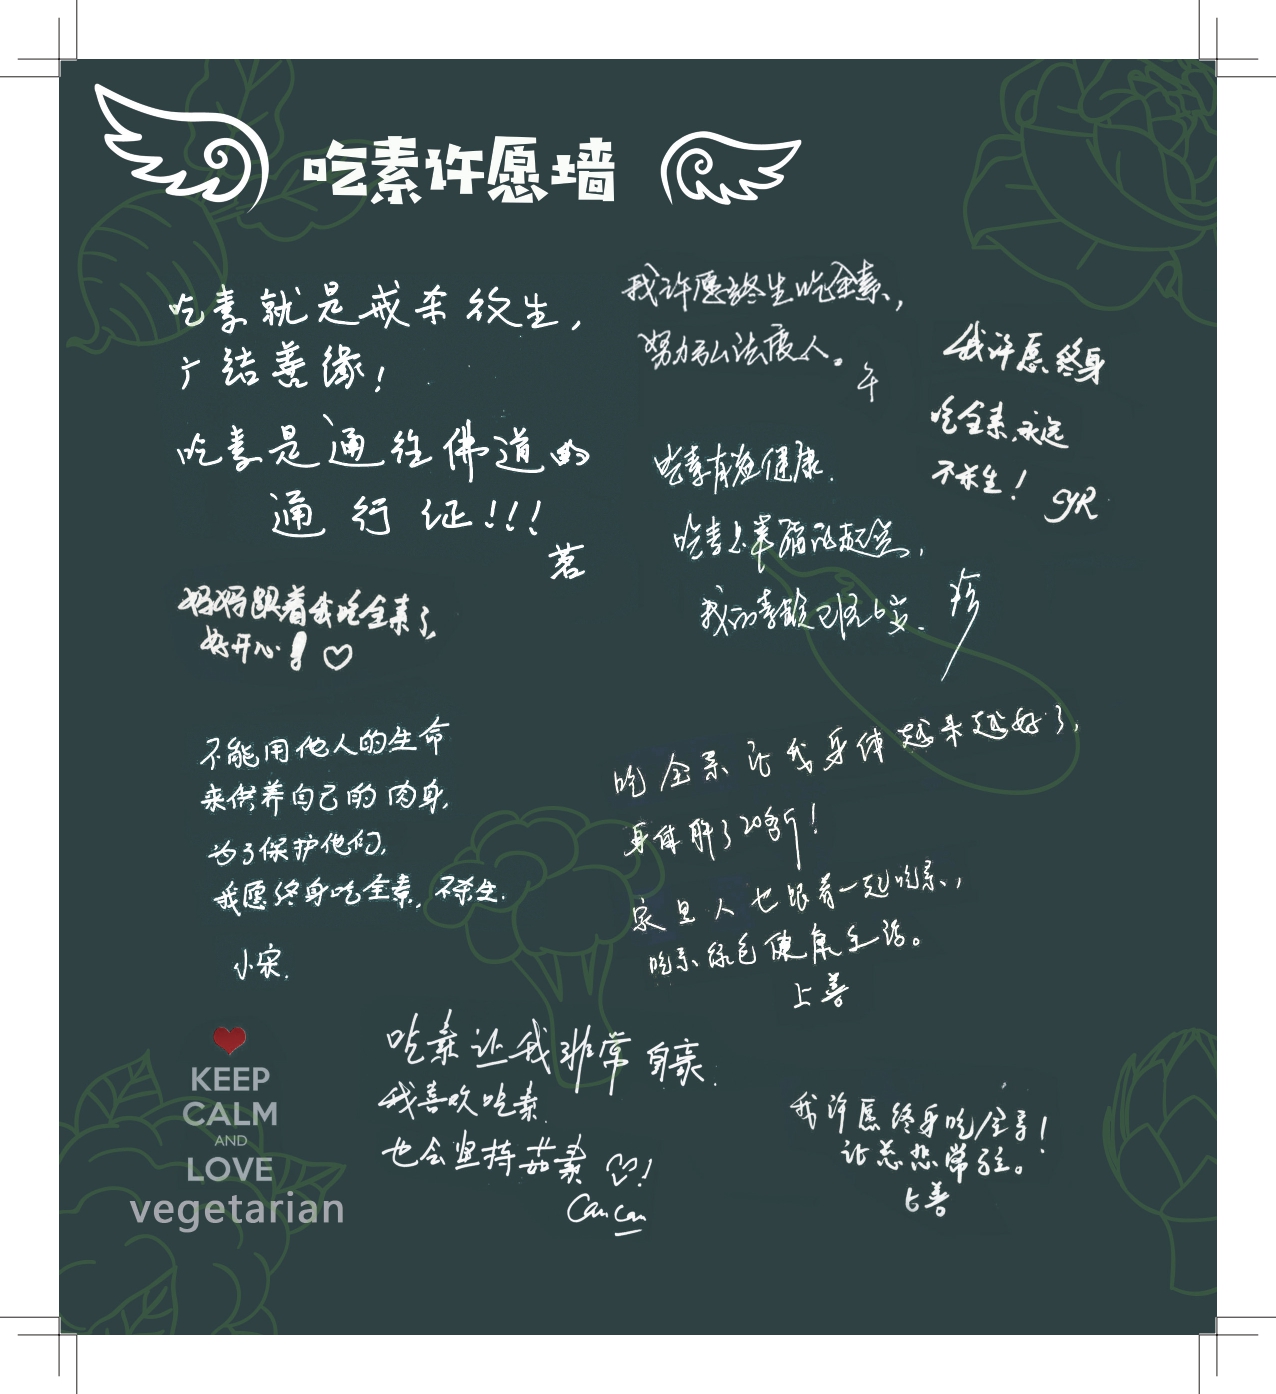 吃素许愿墙
吃素就是戒杀放生，
广结善缘！
吃素是通往佛道的
通行证！！！
茗
我许愿终生吃全素，
努力弘法度人。
午
我许愿终身
吃全素，永远
不杀生！
吃素有益健康.
吃素
我的素龄已经6岁.
珍
妈妈跟着我吃全素了，
好开心！♡
不能用他人的生命
来供养自己的肉身，
为了保护他们，
我愿终身吃全素，不杀生.
小宋.
吃全素让我身体越来越好了，
身体胖了20多斤！
家里人也跟着一起吃素，
吃素绿色健康生活。
上善
吃素让我非常自豪.
我喜欢吃素.
也会坚持茹素♡！
CanCan
我许愿终身吃全素！
让慈悲常驻。
上善
KEEP
CALM
AND
LOVE
vegetarian